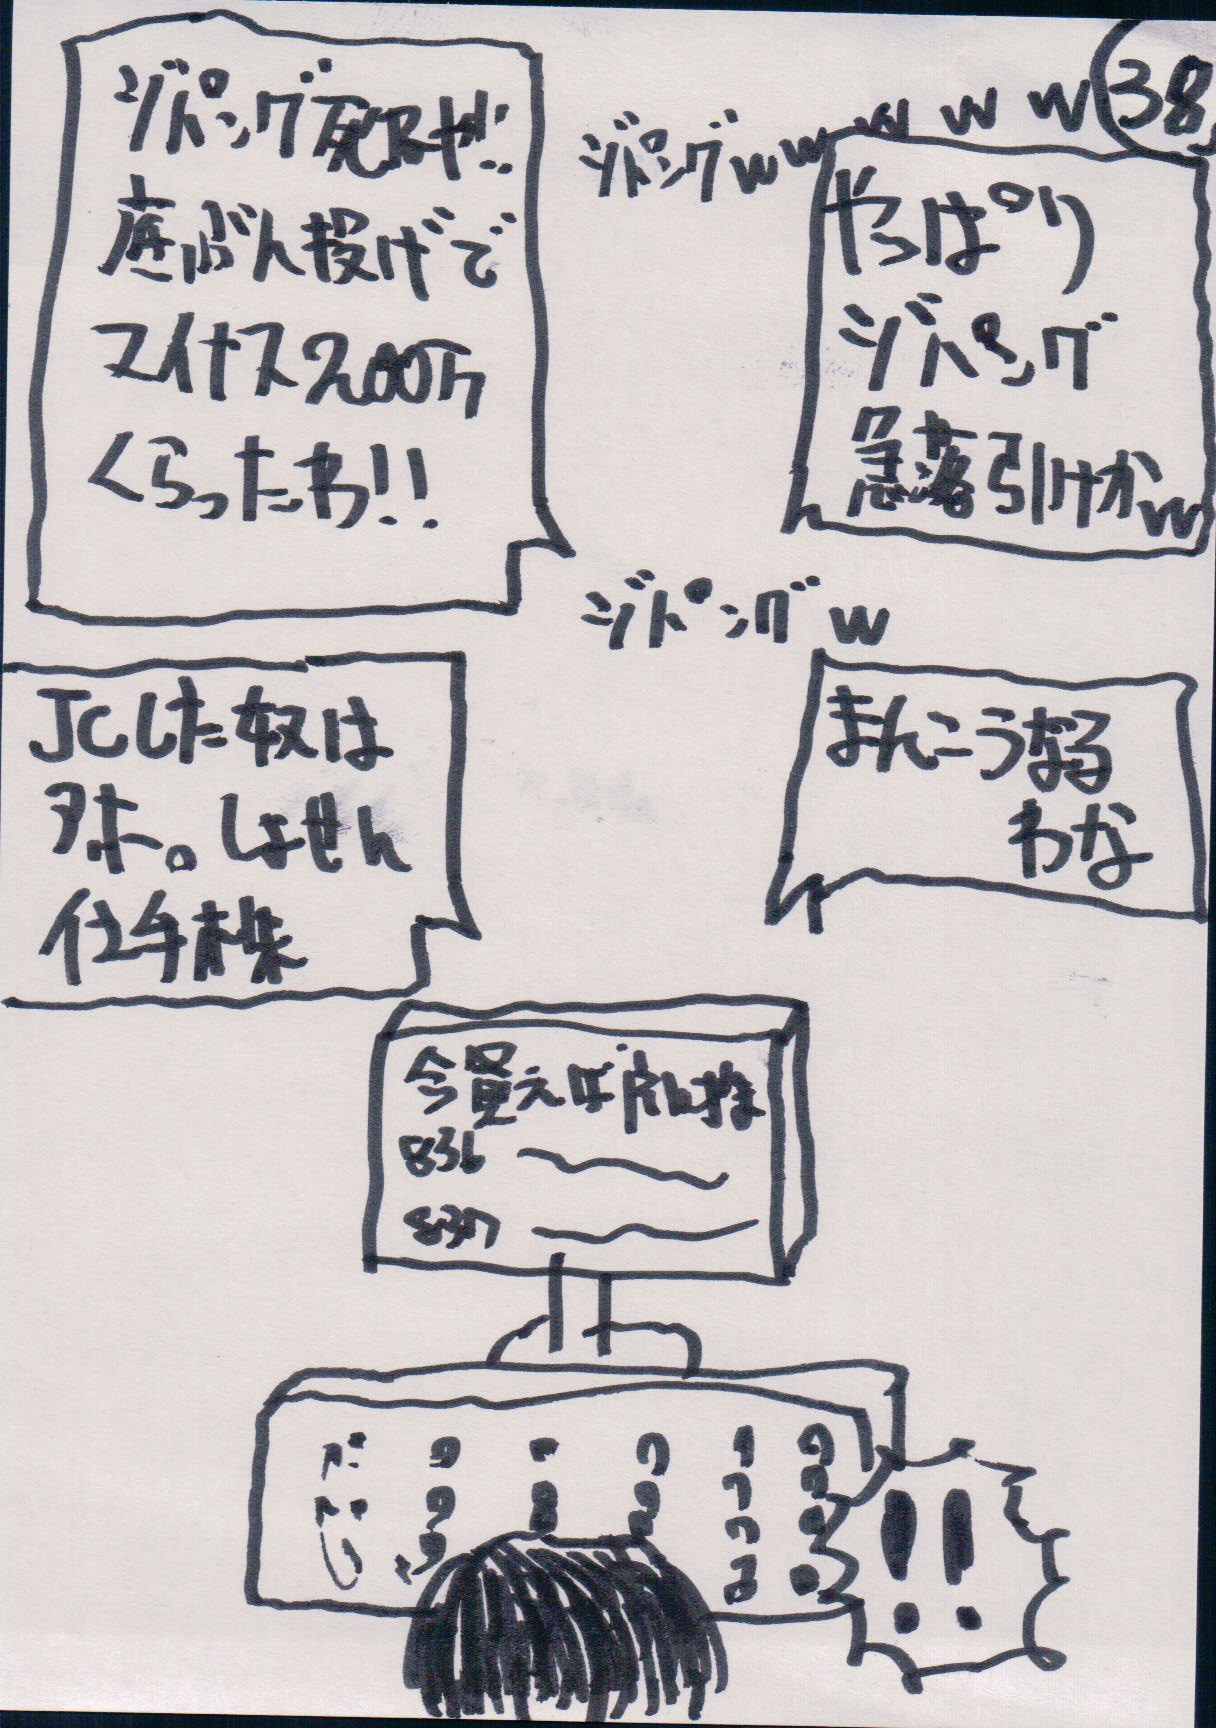 38
ジパングwwwww
やっぱり
ジパング
急落引けかw
ジパング死ぬや!!
底ぶん投げで
マイナス200万
くらったわ!!
ジパングw
まんこうなる
わな
JCした奴は
アホ。しょせん
仕手株
今買えば 株
836
837
!!